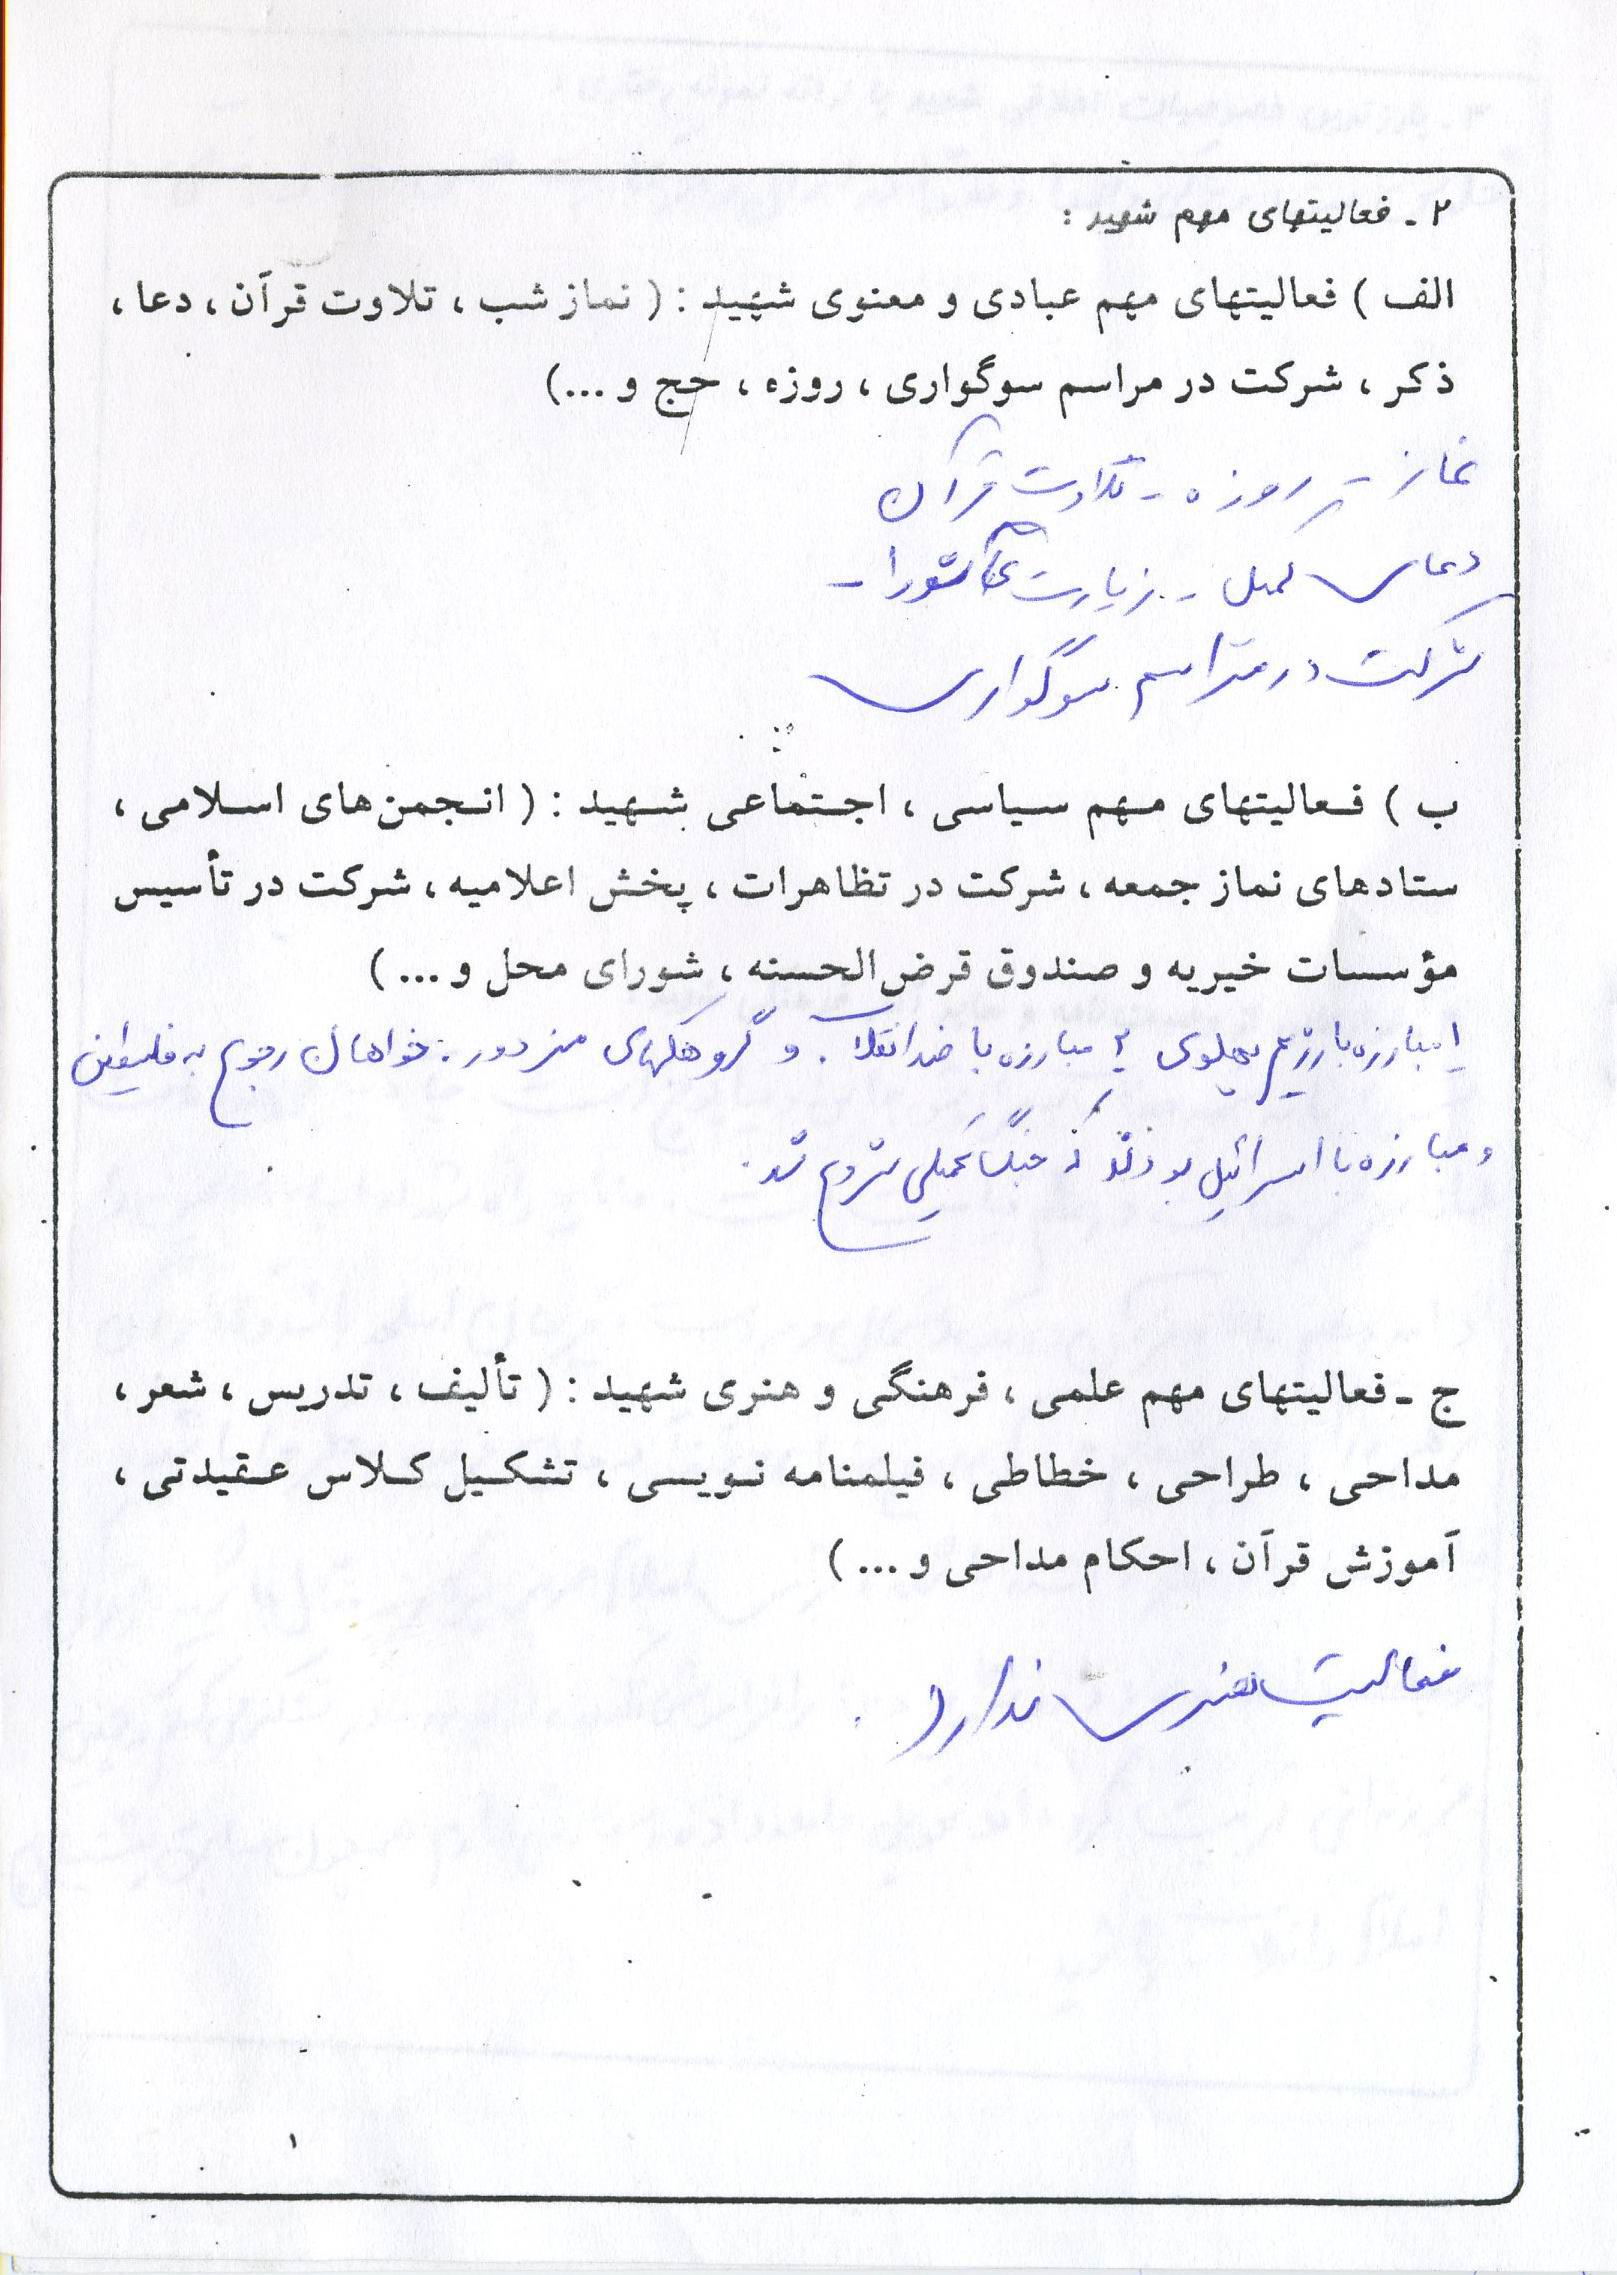 ۲ ـ فعالیتهای مهم شهید :
الف ) فعالیتهای مهم عبادی و معنوی شهید : ( نماز شب ، تلاوت قرآن ، دعا ،
ذکر ، شرکت در مراسم سوگواری ، روزه ، حج و ...)
نماز - روزه - تلاوت قرآن
دعای کمیل - زیارت عاشورا -
شرکت در مراسم سوگواری
ب ) فعالیتهای مهم سیاسی ، اجتماعی شهید : ( انجمن‌های اسلامی ،
ستادهای نماز جمعه ، شرکت در تظاهرات ، پخش اعلامیه ، شرکت در تأسیس
مؤسسات خیریه و صندوق قرض‌الحسنه ، شورای محل و ... )
۱ مبارزه با رژیم پهلوی ۲ مبارزه با ضد انقلاب و گروهکهای مزدور . خواهان رجوع به فلسطین
و مبارزه با اسرائیل بودند که جنگ تحمیلی شروع شد .
ج ـ فعالیتهای مهم علمی ، فرهنگی و هنری شهید : ( تألیف ، تدریس ، شعر ،
مداحی ، طراحی ، خطاطی ، فیلمنامه نویسی ، تشکیل کلاس عقیدتی ،
آموزش قرآن ، احکام مداحی و ... )
فعالیت هنری ندارد .